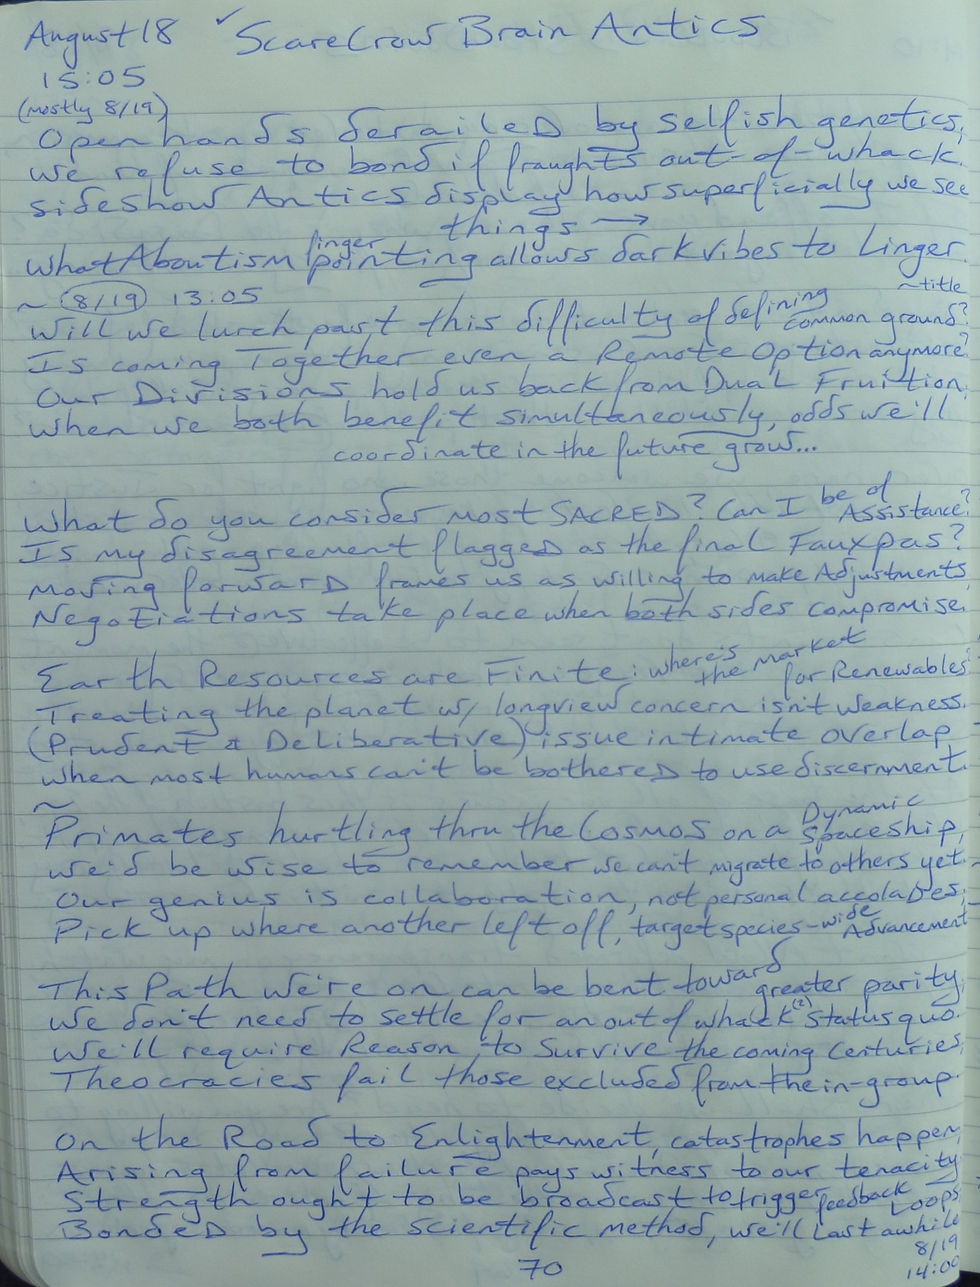 August 18 ✓ ScareCrow Brain Antics
15:05
(mostly 8/19)
Open hands derailed by selfish genetics,
we refuse to bond if fraughts out-of-whack.
sideshow Antics display how superficially we see
things →
WhatAboutism finger pointing allows dark vibes to Linger.
~ 8/19 13:05 ~title
Will we lurch past this difficulty of defining common ground?
Is coming Together even a Remote Option anymore?
Our Divisions hold us back from Dual Fruition.
When we both benefit simultaneously, odds we'll
coordinate in the future grow...
What do you consider most SACRED? Can I be of Assistance?
Is my disagreement flagged as the final Fauxpas?
Moving forward frames us as willing to make Adjustments,
Negotiations take place when both sides compromise.
Earth Resources are Finite: where's the market for Renewables?
Treating the planet w/ longview concern isn't weakness.
(Prudent & Deliberative) issue intimate overlap
when most humans can't be bothered to use discernment.
~
Primates hurtling thru the Cosmos on a Dynamic Spaceship,
we'd be wise to remember we can't migrate to others yet.
Our genius is collaboration, not personal accolades.
Pick up where another left off, target species-wide Advancement
This Path we're on can be bent toward greater parity,
we don't need to settle for an out of whack (2) status quo.
We'll require Reason to Survive the coming Centuries,
Theocracies fail those excluded from the in-group.
On the Road to Enlightenment, catastrophes happen,
Arising from failure pays witness to our tenacity
Strength ought to be broadcast to trigger feedback Loops
Bonded by the scientific method, we'll Last awhile
8/19
14:00
70